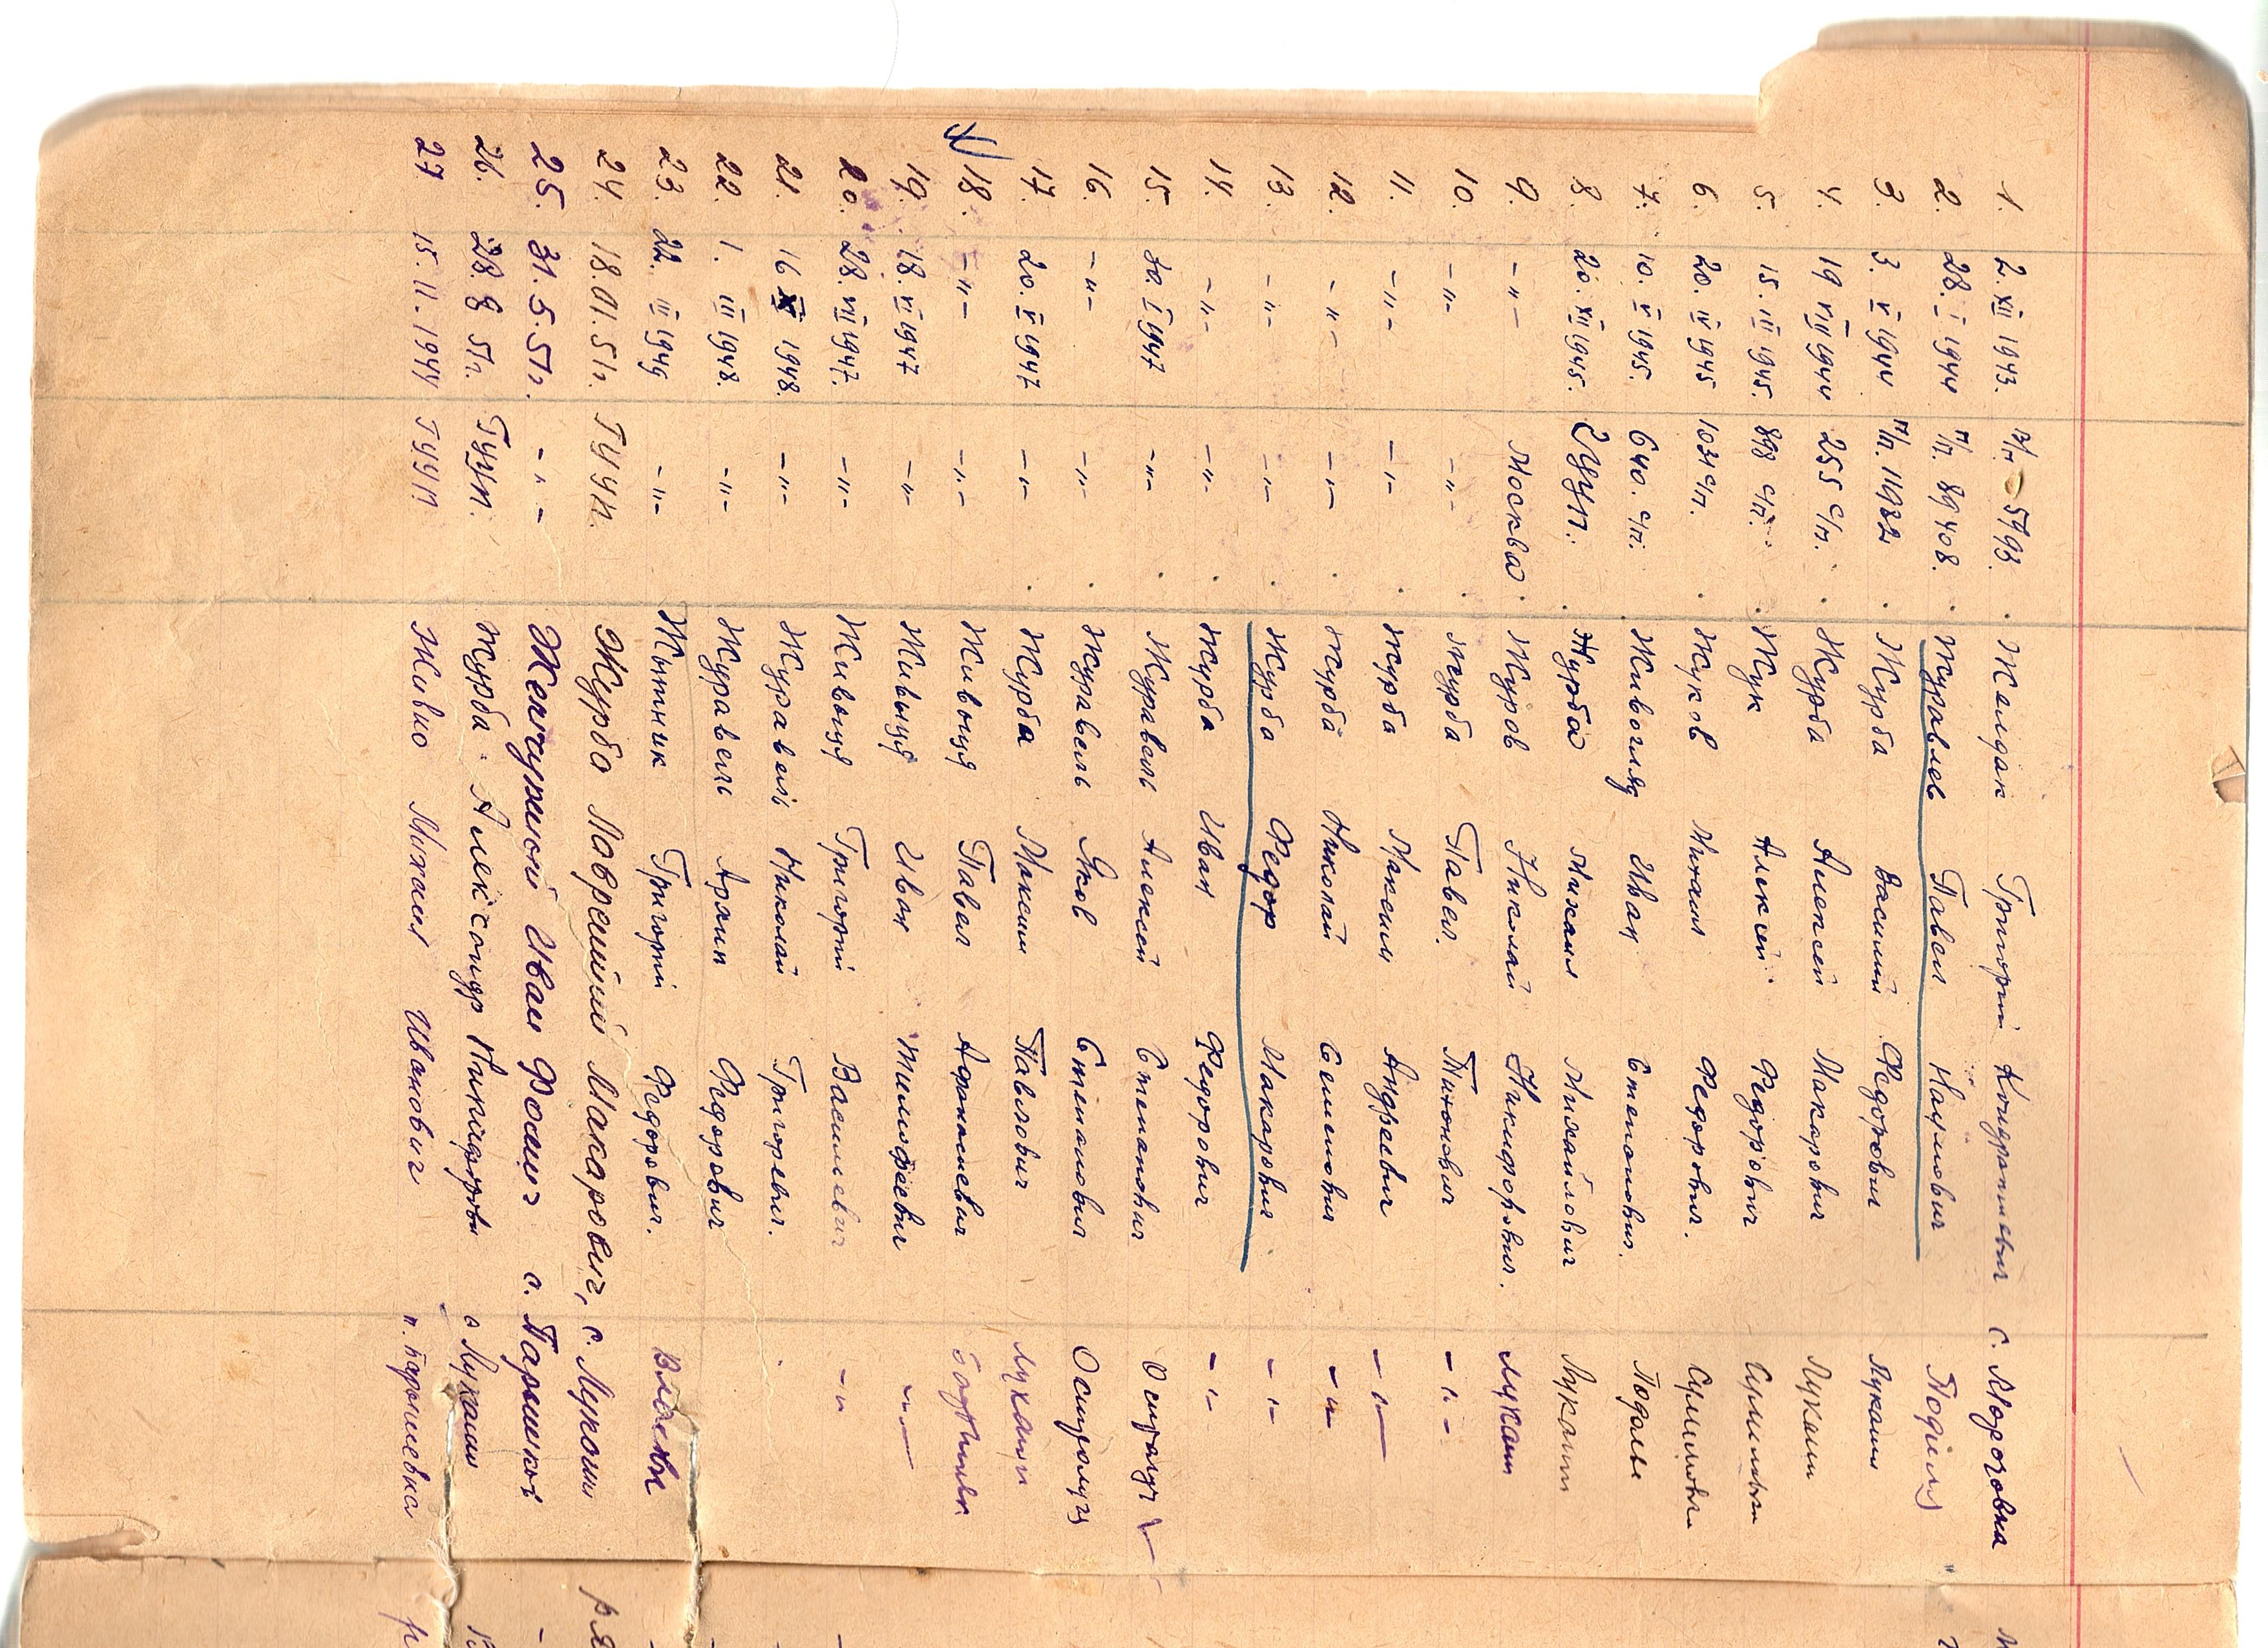 1. 2. XII 1943. п/п 5793. Жалдак Григорий Кондратьевич с.
2. 28. I 1944 п/п. 89408. Журавлев Павел Наумович
3. 3. V 1944 п/п. 11932 Журба Василий Федорович Лукаши
4. 19 VII 1944 255 с/п. Журба Алексей Макарович Лукаши
5. 15. III 1945. 898 с/п. Жук Алексей Федорович
6. 20. IV 1945 1031 с/п. Жуков Михаил Федорович.
7. 10. V 1945. 640. с/п. Иван Степанович.
8. 20. XII 1945. ГУУП. Журба Михаил Михайлович Лукаши
9. -"- Москва. Журов Николай Никифорович. Лукаши
10. -"- -"- Журба Павел. Тихонович -"-
11. -"- -"- Журба Максим Андреевич -"-
12. -"- -"- Журба Николай Семенович -"-
13. -"- -"- Журба Федор Макарович -"-
14. -"- -"- Журба Иван Федорович -"-
15. 30. V 1947 -"- Журавель Алексей Степанович
16. -"- -"- Журавель Яков Степанович
17. 20. V 1947 -"- Журба Максим Павлович Лукаши
18. -"- -"- Живоцуд Павел Афанасиевич
19. 18. VI 1947 -"- Живоцуд Иван Тимофеевич -"-
20. 28. VII 1947. -"- Живоцуд Григорий Василевич -"-
21. 16 XI 1948. -"- Журавель Николай Григоревич.
22. 1. III 1948. -"- Журавель Архип Федорович
23. 22. II 1949 -"- Жытник Григорий Федорович.
24. 18.01.51г. ГУУП. Журба Лаврентий Макарович, с. Лукаши
25. 31.5.51г. -"- Жемчужной Иван Фомич с.
26. 28. 8 51г. ГУУП. Журба Александр с Лукаши
27 15.11.1944 ГУУП Живио Михаил Иванович п.